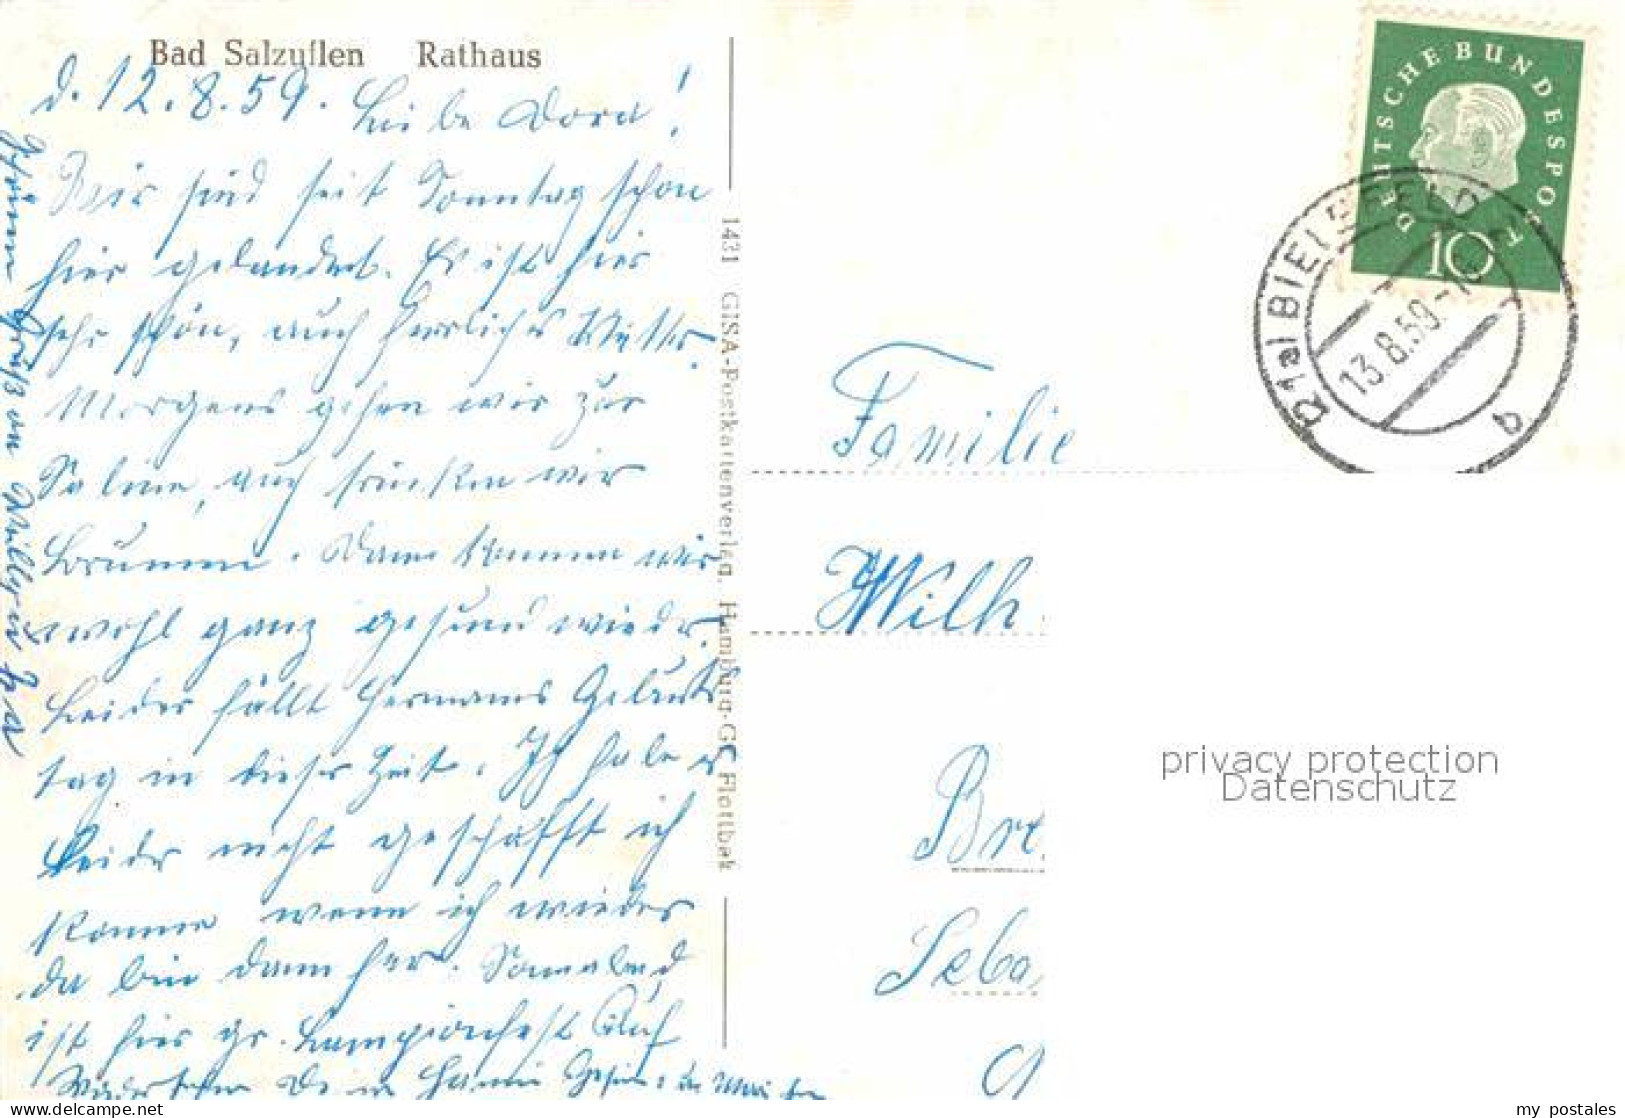 Bad Salzuflen Rathaus
d. 12.8.59. Liebe Dora!
Wir sind seit Sonntag schon
hier gelandet. Es ist hier
sehr schön, auch herrliches Wetter.
Morgens gehen wir zur
Saline, auch trinken wir
Brunnen. Dann kommen wir
wohl ganz gesund wieder.
Leider fällt Hermanns Geburts
tag in dieser Zeit. Ich habe es
leider nicht geschafft ich
komme wenn ich wieder
da bin dann her. Sonnabend
ist hier gr. Lampionfest Auf
Wiedersehen
von Willy u.
1431 GISA-Postkartenverlag, Hamburg-Gr. Flottbek
DEUTSCHE BUNDESPOST
10
(21a) BIELEFELD
13.8.59
b
Familie
Wilh.
Bre
Seba
privacy protection
Datenschutz
my postales